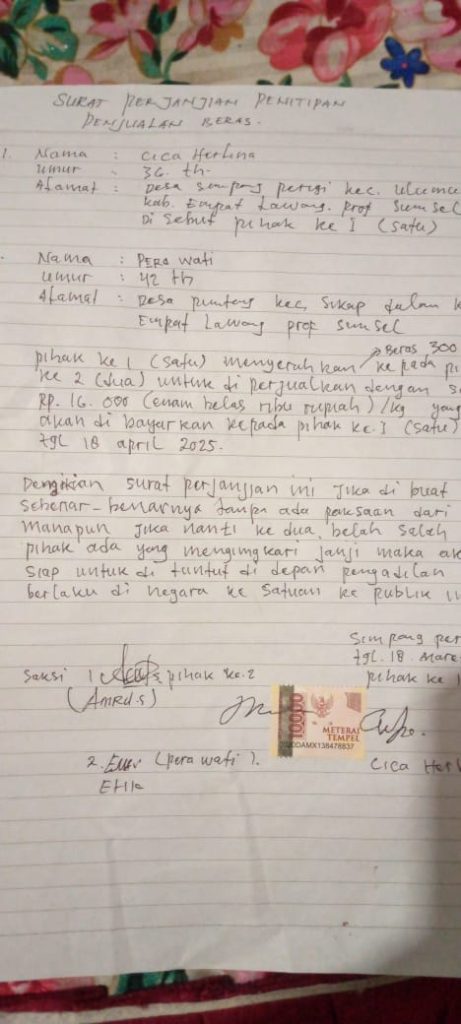 SURAT PERJANJIAN PENITIPAN
PENJUALAN BERAS.
1. Nama : Cica Herlina
Umur : 36. th.
Alamat : Desa Simpang perigi kec. ulumu
kab. Empat Lawang. prof Sumsel
Di sebut pihak ke I (satu)
Nama : Pera wati
Umur : 42 th
Alamat : Desa puntang kec, sikap dalam k
Empat Lawang prof sumsel
Beras 300
pihak ke 1 (satu) menyerahkan kepada pi
ke 2 (dua) untuk di perjualkan dengan
Rp. 16.000 (enam belas ribu rupiah)/kg yang
akan di bayarkan kepada pihak ke.I (satu)
tgl 18 april 2025.
Demikian surat perjanjian ini jika di buat
sebenar-benarnya tanpa ada paksaan dari
manapun jika nanti ke dua belah salah
pihak ada yang mengingkari janji maka ak
siap untuk di tuntut di depan pengadilan
berlaku di negara ke satuan ke publik
Simpang per
tgl. 18. Mare
Saksi 1 pihak ke.2 pihak ke 1
(Amrd.s)
10000
METERAI
TEMPEL
DAMX138476837
2. (pera wati). Cica Her